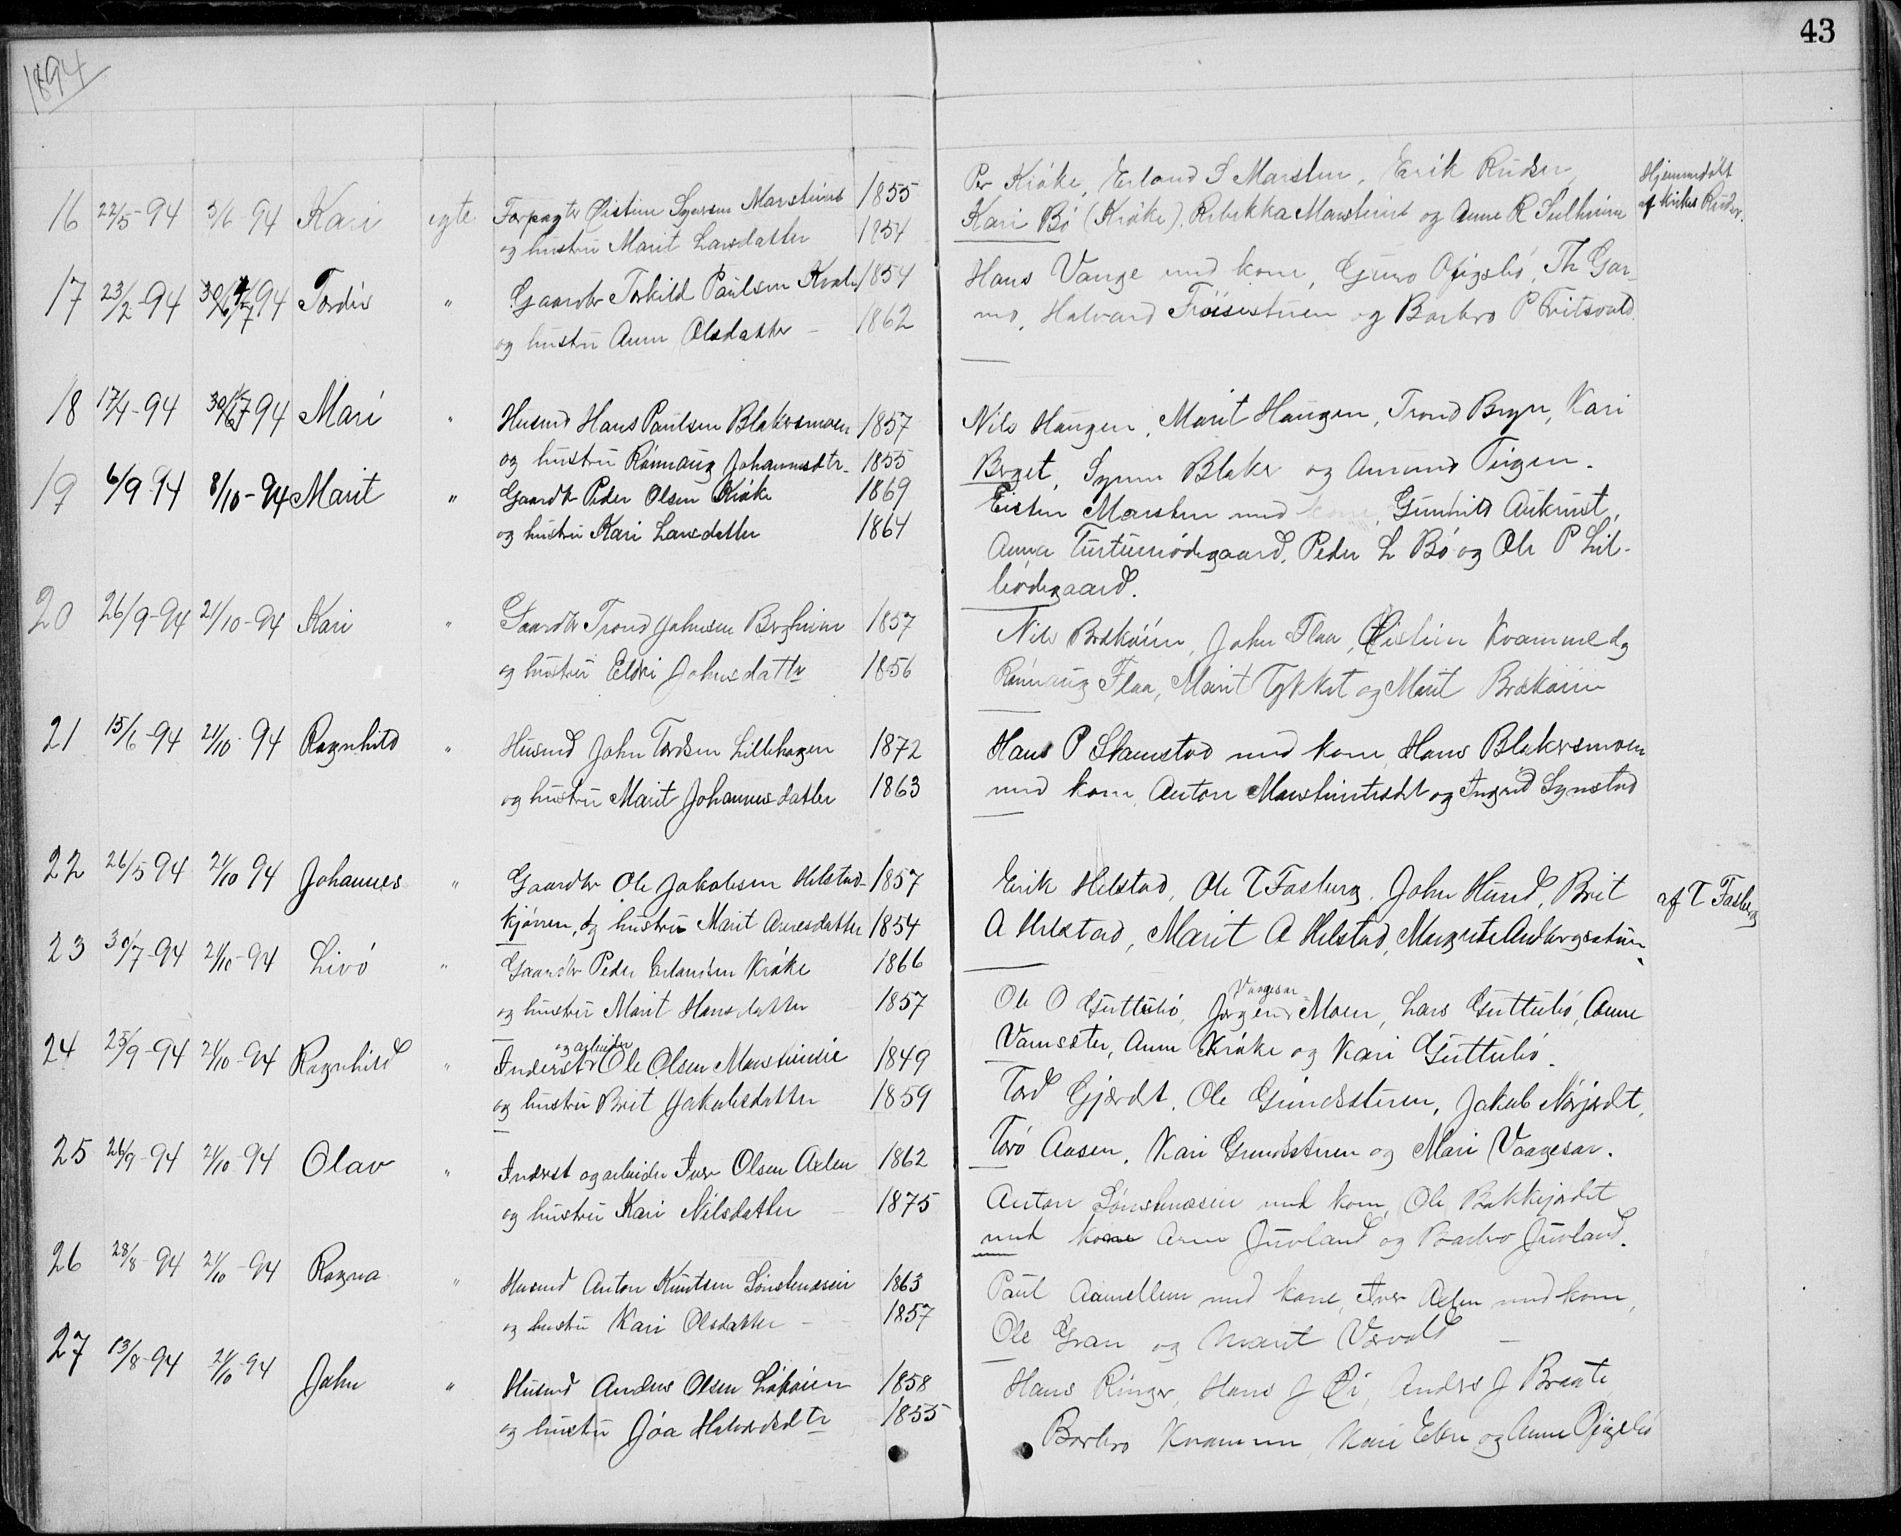 43
1894
16 22/5-94 3/6-94 Kari egte Forpagtr Øistein Syversen Marsteins 1855
og hustru Marit Larsdatter 1854
Per Kråke, Erland S Marstein, Erik Ruder,
Kari Bø (Kråke), Rebekka Marstein og Anne R Sulheim
Hjemmedøbt
af kirkes.
17 23/2-94 94 Tordis " Gaardbr Torkild Paulsen Kvale 1854
og hustru Anne Olsdatter - 1862
Hans Vange med kone, Guro Øfigsbø, Th Gar-
mo, Halvard Frøisestuen og Barbro P Tritsvold.
18 17/4-94 94 Mari " Husmd Hans Paulsen Blakersmoen 1857
og hustru Rønnaug Johannesdtr. 1855
Nils Haugen, Marit Haugen, Trond Bryn, Kari
Berget, Synne Blaker og Amund Teigen.
19 6/9-94 8/10-94 Marit " Gaardbr Peder Olsen Kråke 1869
og hustru Kari Larsdatter 1864
Eisten Marstein med kone, Gunhild Aukrust,
Anna Turtumødegaard, Peder L Bø og Ole P Lil-
bødegaard.
20 26/9-94 21/10-94 Kari " Gaardbr Trond Johnsen Bergheim 1857
og hustru Eldri Johnsdattr 1856
Nils Brækøien, John Flaa, Øistein Kvamme Og
Rønnaug Flaa, Marit Tykket og Marit Brækøien
21 15/6-94 21/10-94 Ragnhild " Husmd John Tordsen Lillehagen 1872
og hustru Marit Johannesdatter 1863
Hans P Skamstad med kone, Hans Blakersmoen
med kone, Anton Marsteintrædet og Ingrid Synstad
22 26/5 94 21/10 94 Johannes " Gaardbr Ole Jakobsen Helstad- 1857
kjønen, Og hustru Marit Arnesdatter 1854
Erik Helstad, Ole T Fosberg, John Hund, Brit
A Helstad, Marit A Helstad, Margrete Andvorgsstuen
af T Fosberg
23 30/7-94 21/10-94 Livø " Gaardbr Peder Erlandsen Kråke 1866
og hustru Marit Hansdatter 1857
Ole O Guttubø, Jørgen Vaagesar Moen, Lars Guttubø, Anne
Vamsæter, Anne Kråke og Kari Guttubø.
24 25/9-94 21/10-94 Ragnhild " Inderst og arbeider Ole Olsen 1849
og hustru Brit Jakobsdatter 1859
Tord Gjærdt, Ole Grindstuen, Jakob Nørjordt,
Torø Aasen, Kari Grindstuen og Mari Vaagesar.
25 26/9-94 21/10-94 Olav " Inderst og arbeider Iver Olsen Aelen 1862
og hustru Kari Nilsdatter - 1875
Anton Lønsthusein med kone, Ole Bakkejordet
med kone Arne Juvland og Barbro Juvland.
26 28/8-94 21/10-94 Ragna " Husmd Anton Knutsen Lønsthusein 1863
og hustru Kari Olsdatter - 1857
Paul Aamellem med kone, Iver Aelen med kone,
Ole Gran og Marit Vorvold
27 13/8-94 21/10-94 John " Husmd Anders Olsen Løkøien 1858
og hustru Jøa Halvordsdtr 1855
Hans Ringer, Hans J Øi, Anders J Braate
Barbro Kvammen Kari Elve og Anne Øfigsbø